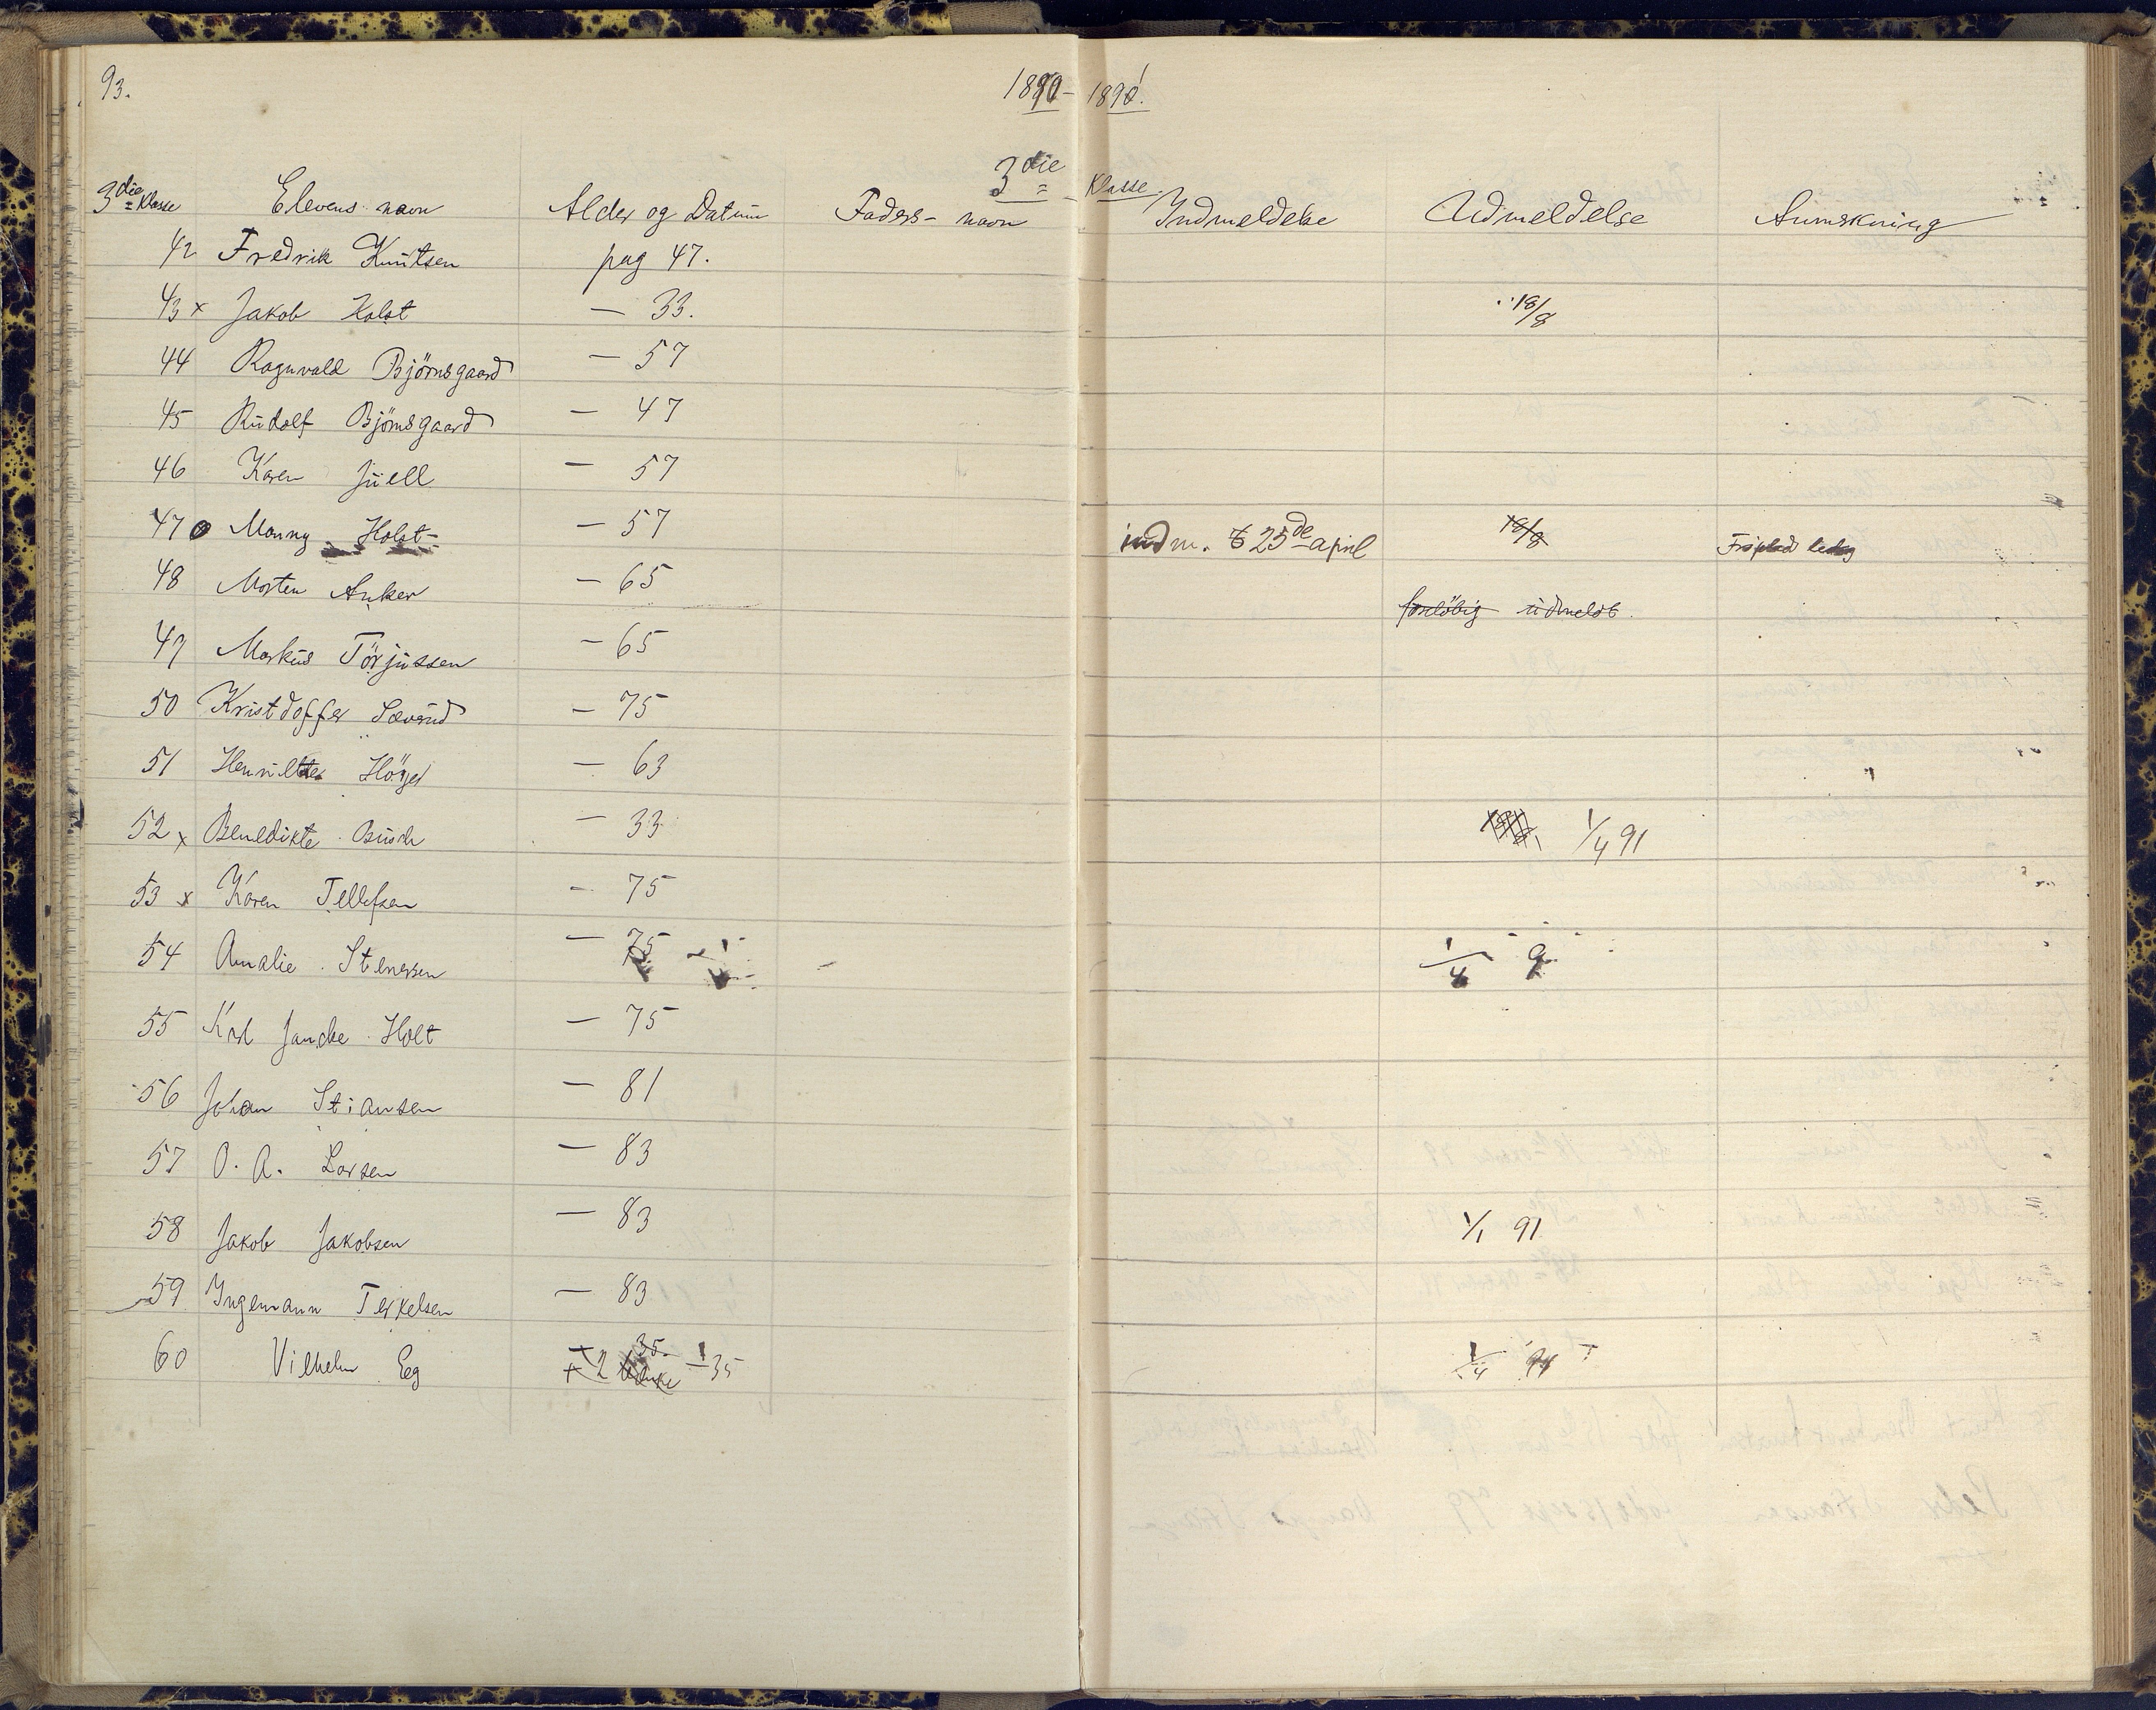 93. 1890 – 1891.
3die Klasse.
3die Klasse Elevens navn Alder og Datum Faders-navn Indmeldelse Udmeldelse Anmærkning
42 Fredrik Knutsen pag 47.
43 x Jakob Holst — 33. 18/8
44 Ragnvald Björnsgaard — 57
45 Rudolf Björnsgaard — 47
46 Karen Juell — 57
47 Manny Holst — 57 indm. 25de april 18/8
48 Morten Anker — 65 forelöbig udmeldt.
49 Markus Törjussen — 65
50 Kristdoffer Sævrud — 75
51 Höyer — 63
52 x Benedikte Busch — 33 1/4 91
53 x Karen Tellefsen — 75
54 Amalie Stenersen — 75 1/4 9
55 Karl Jancke Holt — 75
56 Johan Stiansen — 81
57 O. A. Larsen — 83
58 Jakob Jakobsen — 83 1/1 91
59 Ingemann Terkelsen — 83
60 Vilhelm Eeg 35 1/4 91